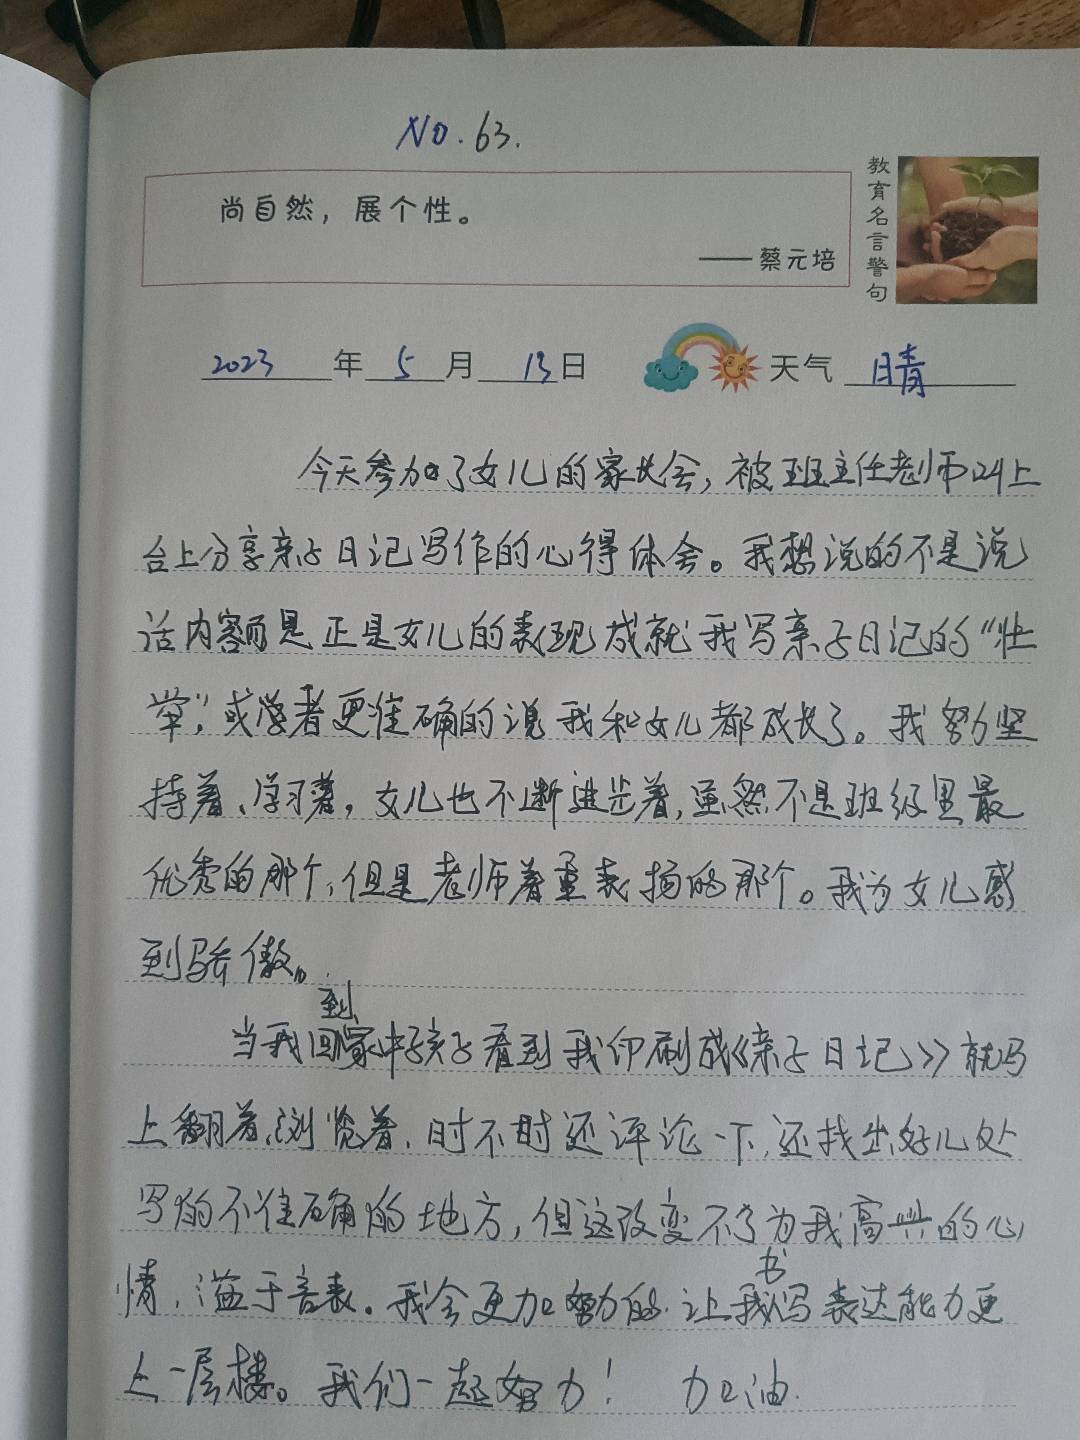 NO.63.
尚自然，展个性。
——蔡元培
教育名言警句
2023年5月13日 天气 晴
今天参加了女儿的家长会，被班主任老师叫上
台上分享亲子日记写作的心得体会。我想说的不是说
话内容而是正是女儿的表现成就我写亲子日记的“壮
举”，或学者更准确的说我和女儿都成长了。我努力坚
持着、学习着，女儿也不断进步着，虽然不是班级里最
优秀的那个，但是老师着重表扬的那个。我为女儿感
到骄傲。
当我回到家中孩子看到我印刷成《亲子日记》就马
上翻着、浏览着，时不时还评论一下，还找出好几处
写的不准确的地方，但这改变不了为我高兴的心
情，溢于言表。我会更加努力的，让我书写表达能力更
上一层楼。我们一起努力！ 加油.